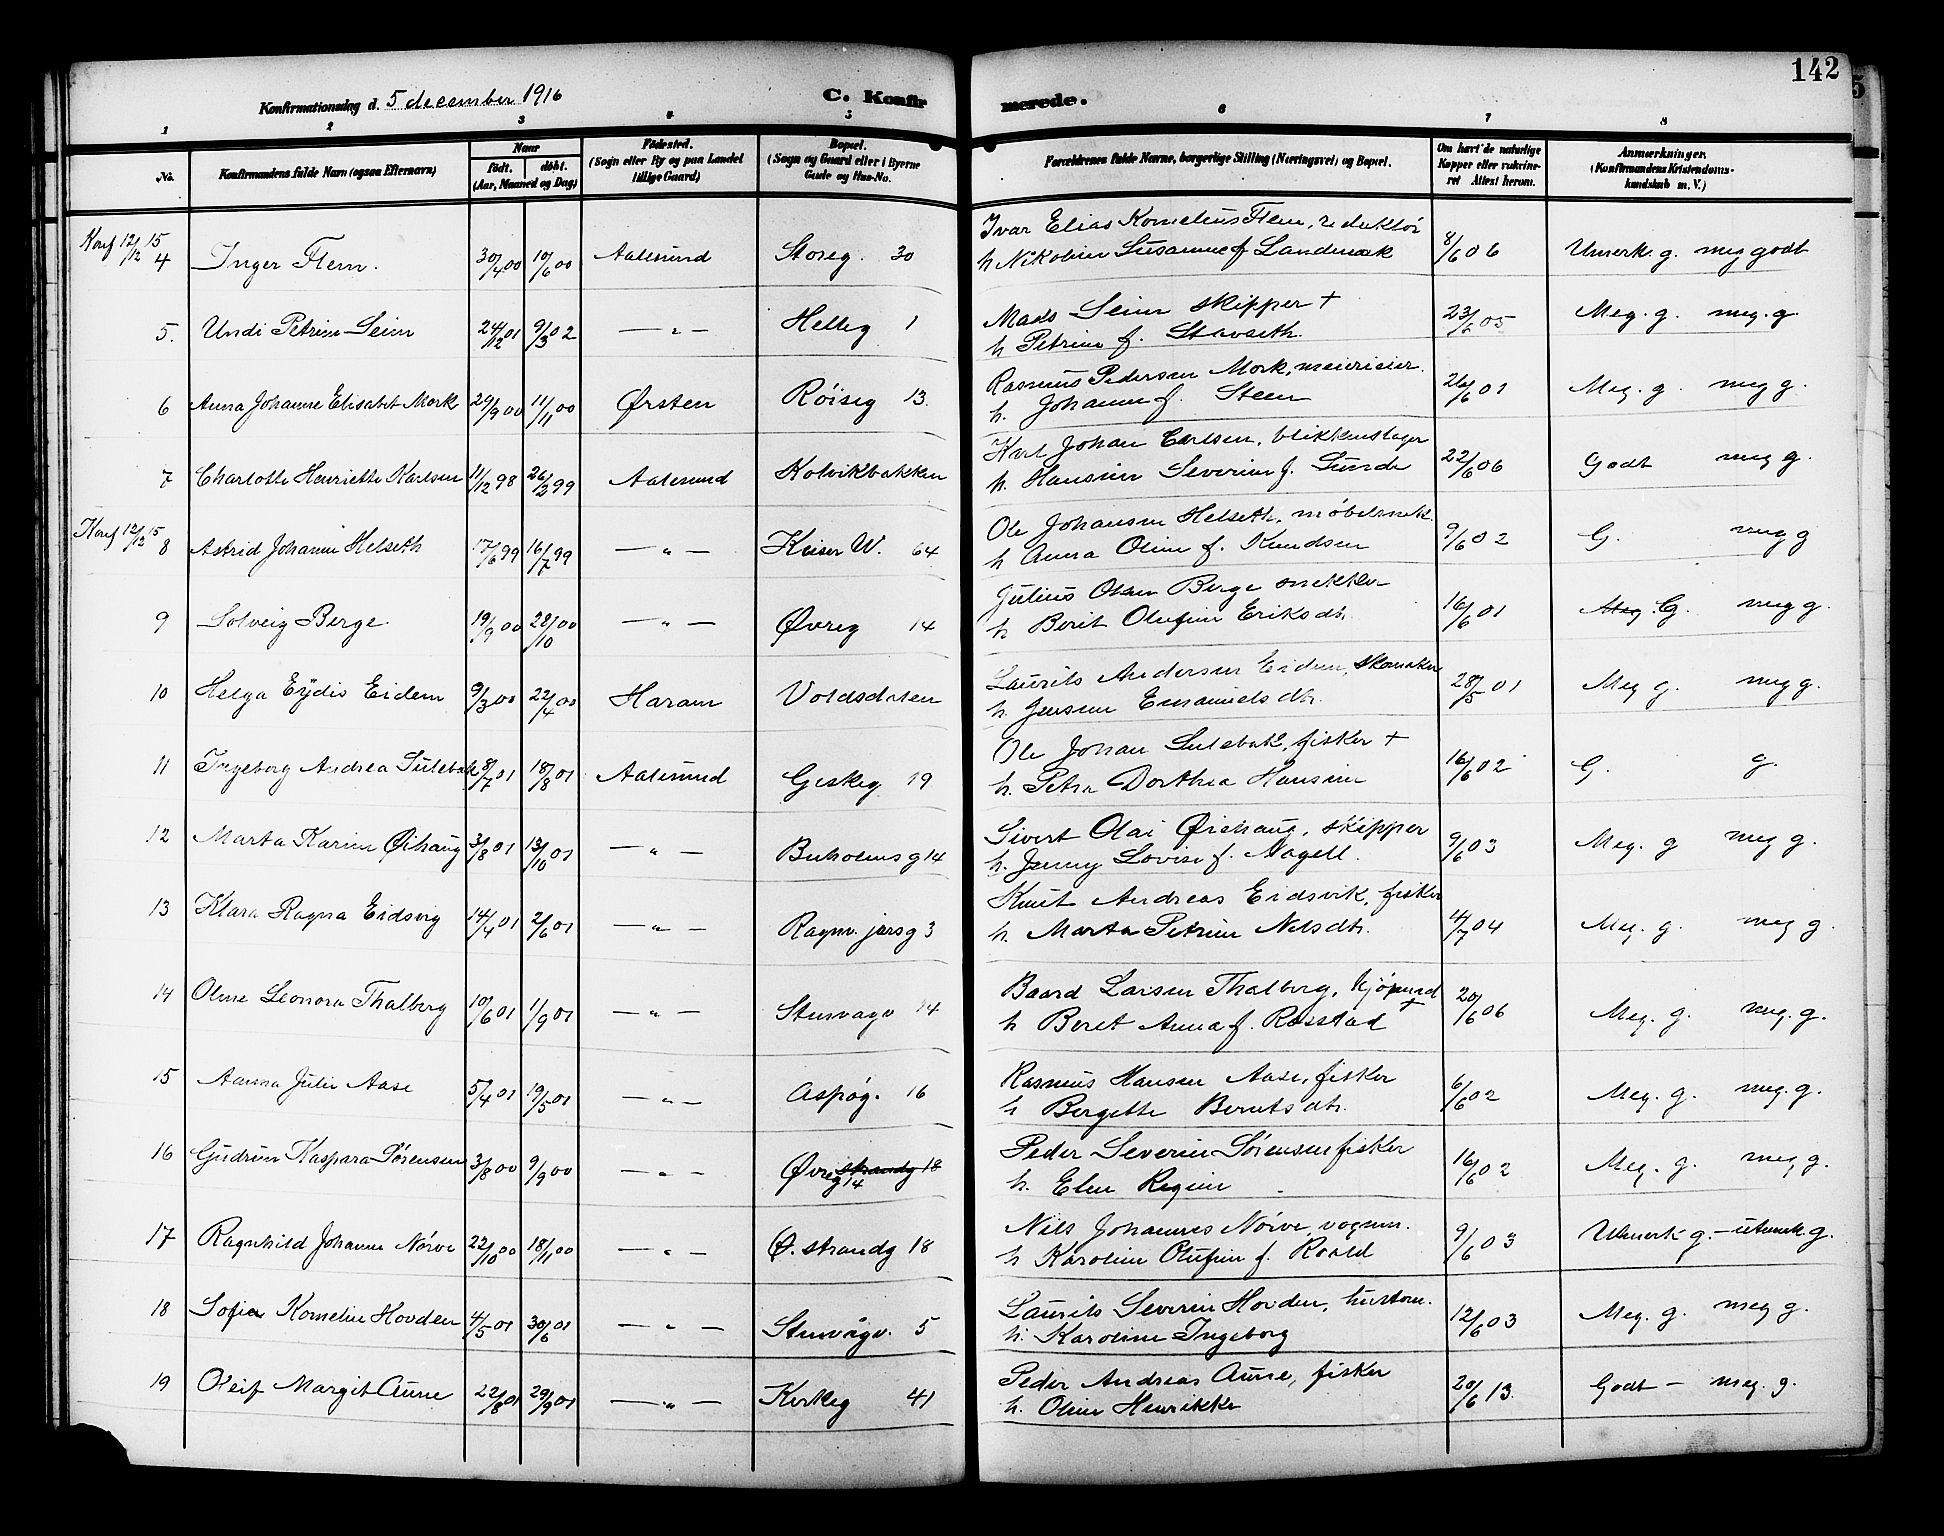 142
5
Konfirmationsdag d. 5 december 1916 C. Konfirmerede.
1 2 3 4 5 6 7 8
No. Konfirmandens fulde Navn (ogsaa Efternavn) Naar født. døbt. (Aar, Maaned og Dag) Fødested. (Sogn eller By og paa Landet tillige Gaard) Bopæl. (Sogn og Gaard eller i Byerne Gade og Hus-No. Forældrenes fulde Navne, borgerlige Stilling (Næringsvei) og Bopæl. Om havt de naturlige Kopper eller vakcineret Attest herom. Anmærkninger. (Konfirmandens Kristendomskundskab m. V.)
Konf 12/12 15
Ivar Elias Kornelius Flem, redaktør
4 Inger Flem. 30/4 00 10/6 00 Aalesund Storg. 30 h Nikoline Susanne f Landmark 8/6 06 Utmerk. g. meg godt
Mads Seim skipper +
5. Undi Petrine Seim 24/12 01 9/3 02 — " — Helleg 1 h Petrine f. Stavseth. 23/6 05 Meg. g. meg. g.
Rasmus Pedersen Mork, meierieier.
6 Anna Johanne Elisabet Mork 29/9 00 11/11 00 Ørsten Røiseg 13. h. Johanne f. Steen 26/6 01 Meg. g meg g.
Karl Johan Carlsen, blikkenslager
7 Charlotte Henriette Karlsen 11/12 98 26/2 99 Aalesund Kolvikbakken h. Hansine Severine f. Sunde 22/6 06 Godt meg g.
Konf 12/12 15
Ole Johansen Helseth, møbelsnekk.
8 Astrid Johanne Helseth 17/6 99 16/7 99 — " — Keiser W. 64 h Anna Oline f. Knudsen 9/6 02 G. meg g
Julius Olsen Berge snekker
9 Solveig Berge. 19/9 00 28/10 00 — " — Øvreg 14 h Berit Olufine Eriksdtr. 16/6 01 Meg G. meg g.
Laurits Andersen Eidem, skomaker
10 Helga Eydis Eidem 9/3 00 22/4 00 Haram Voldsdalen h. Jensine Emanuelsdtr. 28/5 01 Meg g. meg g.
Ole Johan Sulebak, fisker +
11 Ingeborg Andrea Sulebak 8/7 01 18/8 01 Aalesund Giskeg 19 h. Petra Dorthea Hansine 16/6 02 G. g.
Sivert Olai Øiehaug, skipper
12 Marta Karine Øihaug 3/8 01 13/10 01 — " — Buholmsg 14 h. Jenny Lovise f. Nagell. 9/6 03 Meg. g meg g.
Knut Andreas Eidsvik, fisker
13 Klara Ragna Eidsvig 14/4 01 2/6 01 — " — Ragnv. jarsg 3 h. Marta Petrine Nilsdtr. 4/7 04 Meg. g. meg g.
Baard Larsen Thalberg, kjøpmand +
14 Oline Leonora Thalberg 10/6 01 1/9 01 — " — Stenvagv 14 h Beret Anna f. Rosstad 20/6 06 Meg. g. meg. g.
Rasmus Hansen Aase, fisker
15 Aanna Julie Aase 5/4 01 19/5 01 — " — Aspøg. 16 h Bergette Berntsdtr. 6/6 02 Meg. g. meg. g.
Peder Severin Sørensen fisker
16 Gudrun Kaspara Sørensen 3/8 00 9/9 00 — " — Øvreg strandg 18 14 h. Elen Regine 16/6 02 Meg. g. meg g.
Nils Johannes Nørve, vognm.
17 Ragnhild Johanne Nørve 22/10 00 18/11 00 — " — Ø. strandg 18 h Karoline Olufine f. Roald 9/6 03 Utmerk g. — utmerk g.
Laurits Severin Hovden, hustom.
18 Sofie Kornelie Hovden 4/5 01 30/6 01 — " — Stenvågv. 5 h. Karoline Ingeborg 12/6 03 Meg. g. meg g.
Peder Andreas Aune, fisker
19 Oleif Margit Aune 22/8 01 29/9 01 — " — Kirkeg 41 h. Oline Henrikke 20/6 13. Godt — meg. g.